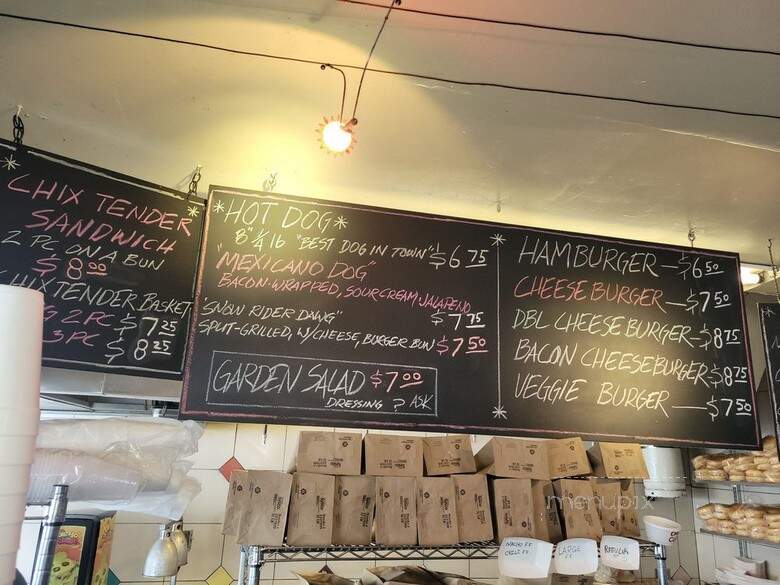 CHIX TENDER
SANDWICH
2 PC ON A BUN
$8.00
CHIX TENDER BASKET
2 PC $7.25
3 PC $8.25
*HOT DOG*
8" 1/4 lb "BEST DOG IN TOWN" $6.75
"MEXICANO DOG"
BACON-WRAPPED, SOUR CREAM, JALAPENO
$7.75
"SNOW RIDER DAWG"
SPLIT-GRILLED, W/CHEESE, BURGER BUN $7.50
GARDEN SALAD $7.00
DRESSING ? ASK
HAMBURGER—$6.50
CHEESE BURGER—$7.50
DBL CHEESE BURGER-$8.75
BACON CHEESEBURGER-$8.75
VEGGIE BURGER—$7.50
menupix
LARGE
REGULAR